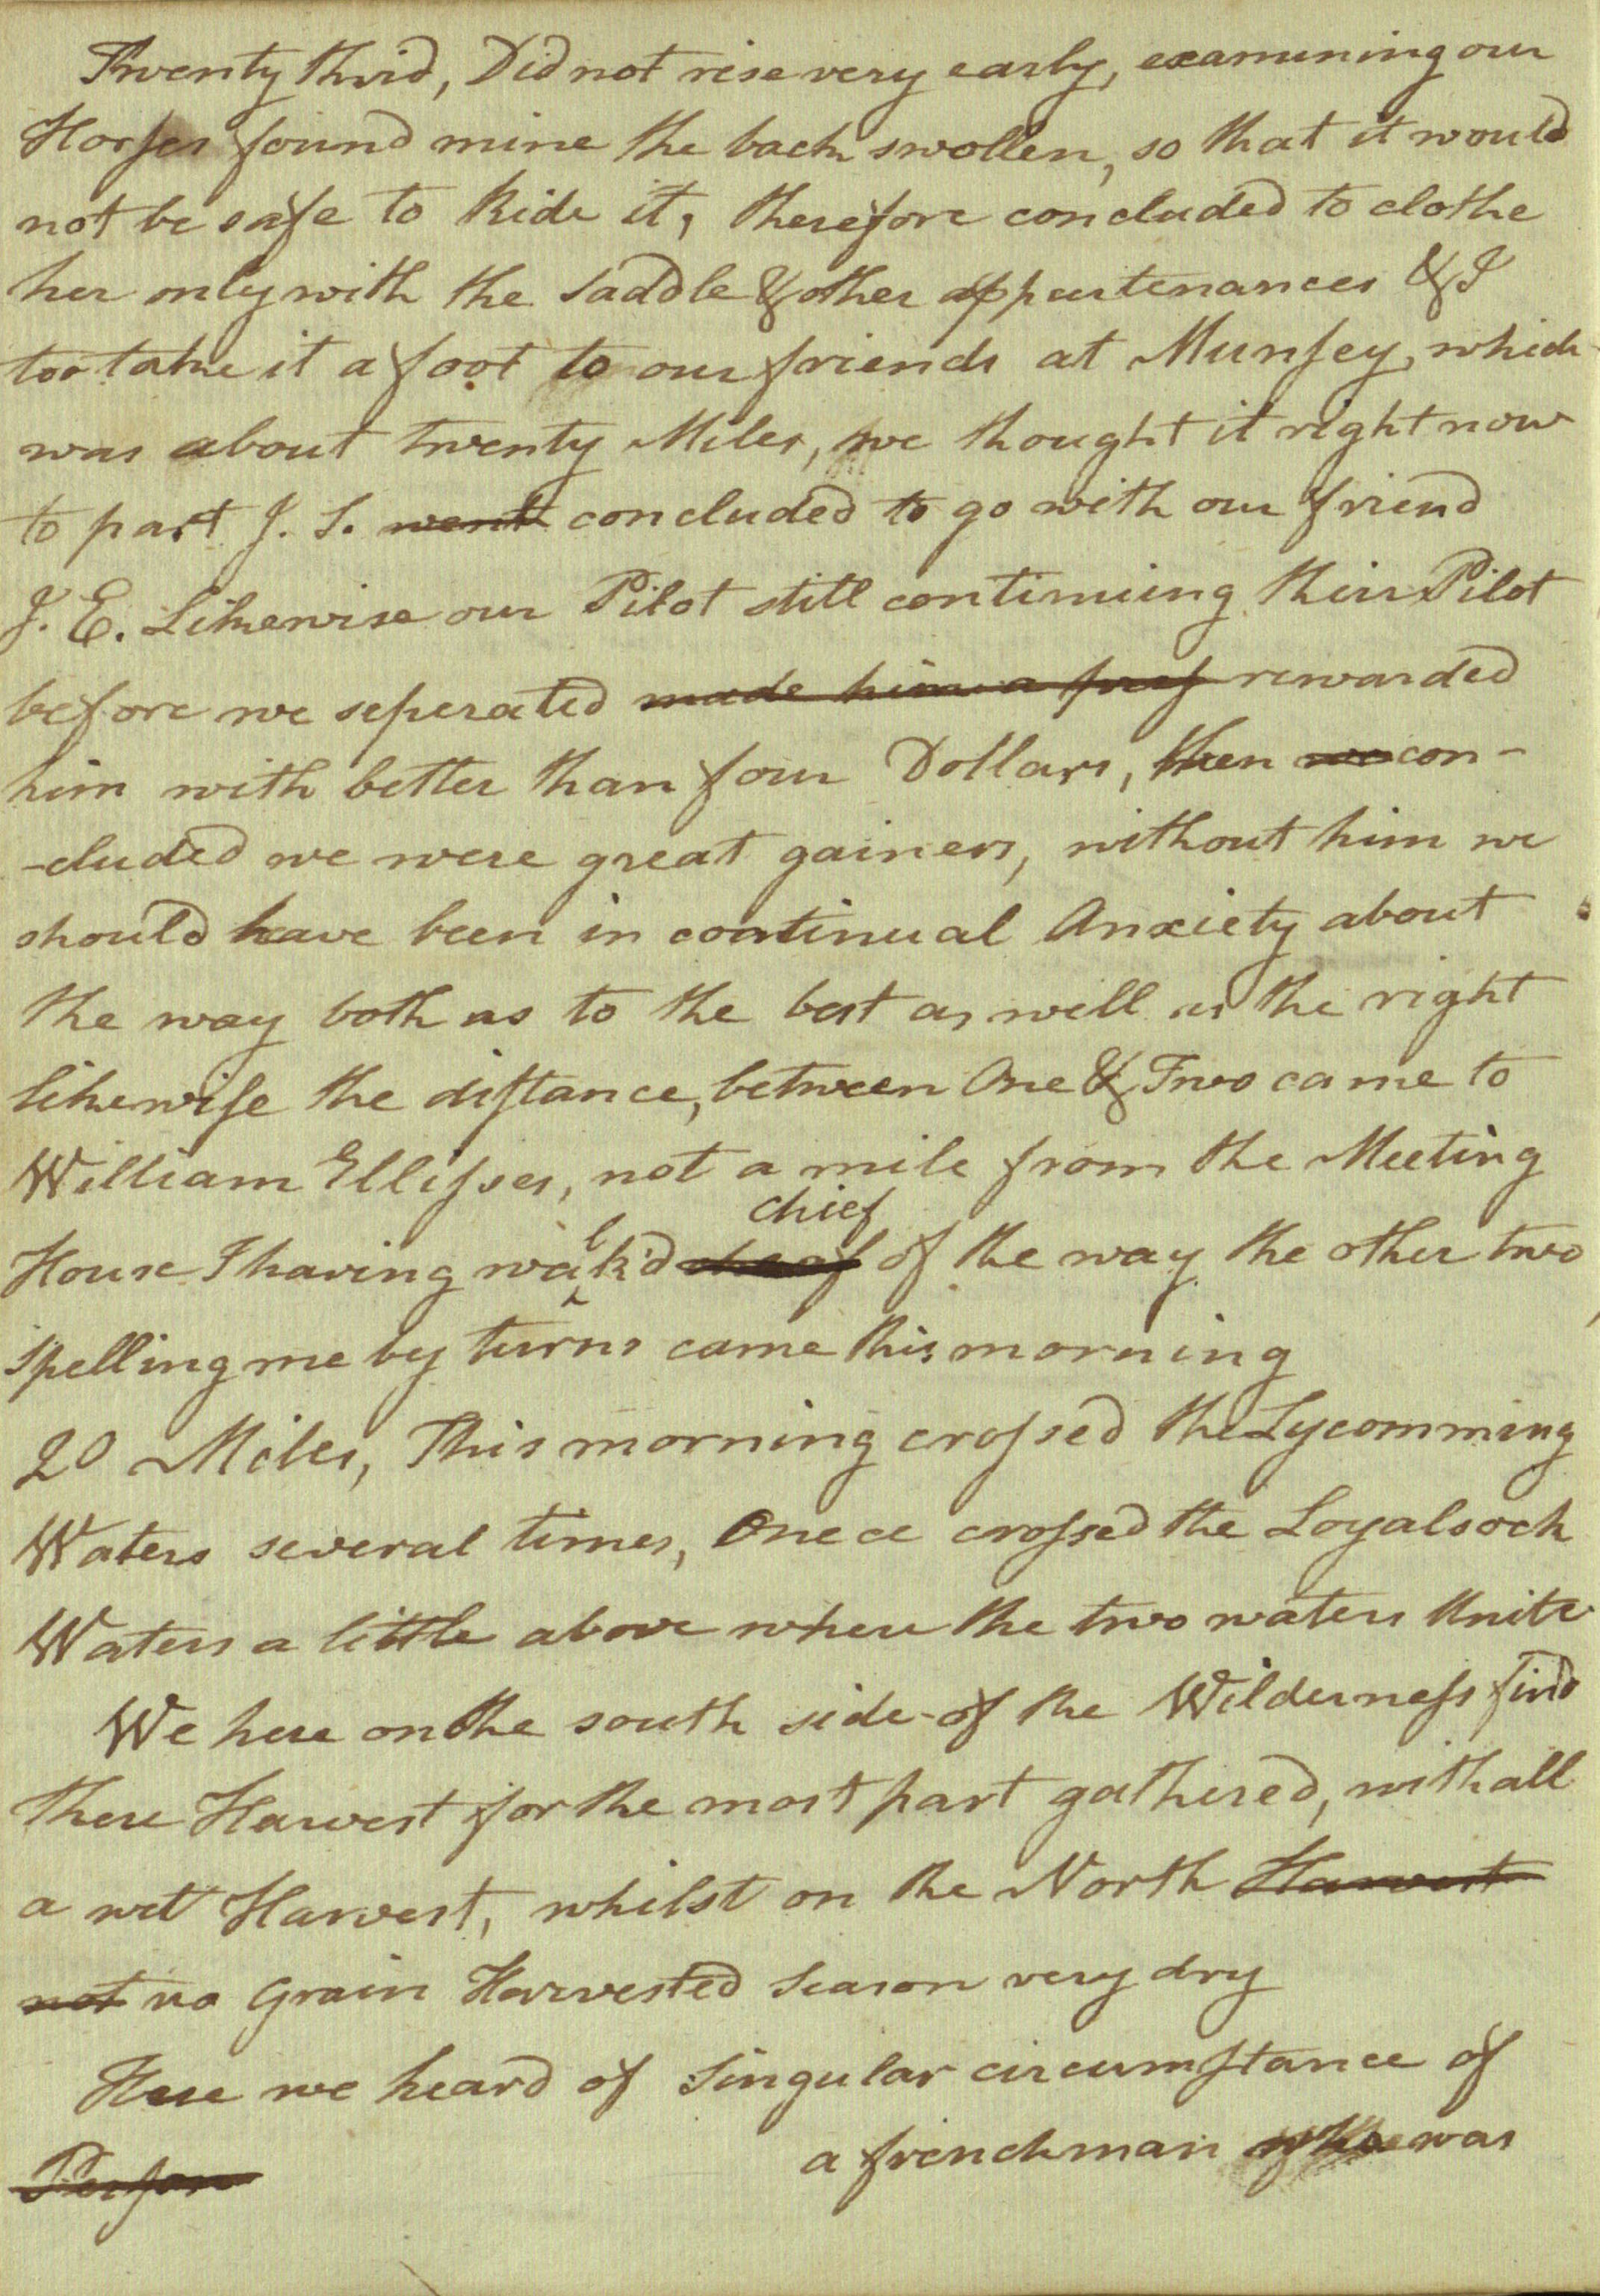 Twenty third, Did not rise very early, examining our
Horses found mine the back swollen, so that it would
not be safe to Ride it, therefore concluded to clothe
her only with the Saddle & other appurtenances & I
too take it a foot to our friends at Munsey, which
was about twenty Miles, we thought it right now
to part J. S. went concluded to go with our friend
J. E. Likewise our Pilot still continuing their Pilot
before we seperated made him a rewarded
him with better than four Dollars, then we con-
-cluded we were great gainers, without him we
should have been in continual Anxiety about
the way both as to the best as well as the right
likewise the distance, between One & Two came to
William Ellisses, not a mile from the Meeting
chief
House I having walk'd of the way the other two
spelling me by turns came this morning
20 Miles, This morning crossed the Lycomming
Waters several times, Onece crossed the Loyalsock
Waters a little above where the two waters Unite
We here on the south side of the Wilderness find
there Harvest for the most part gathered, withall
a wet Harvest, whilst on the North Harvest
not no Grain Harvested Season very dry
Here we heard of Singular circumstance of
Person a frenchman who was